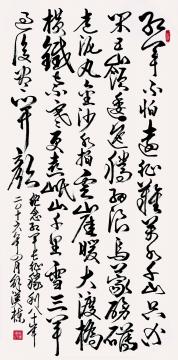 红军不怕远征难万水千山只等
闲五岭逶迤腾细浪乌蒙磅礴
走泥丸金沙水拍云崖暖大渡桥
横铁索寒更喜岷山千里雪三军
过后尽开颜
纪念红军长征胜利八十年
二〇一六年